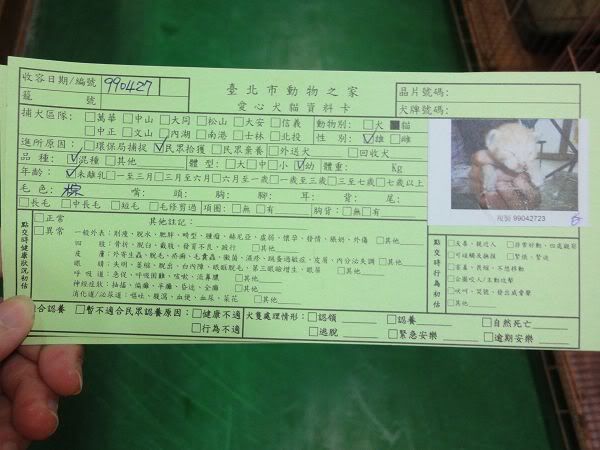 收容日期/編號 990427
臺北市動物之家
晶片號碼:
籠 號
愛心犬貓資料卡
犬牌號碼:
捕犬區隊: □萬華 □中山 □大同 □松山 □大安 □信義 動物別: □犬 ■貓
□中正 □文山 □內湖 □南港 □士林 □北投 性 別: ☑雄 □雌
進所原因: □環保局捕捉 ☑民眾拾獲 □民眾棄養 □外送犬 □回收犬
品 種: ☑混種 □其他 體 型: □大 □中 □小 ☑幼 體重: Kg
年齡: ☑未離乳 □一至三月 □三月至六月 □六月至一歲 □一歲至三歲 □三至七歲 □七歲以上
毛 色: 棕 嘴: 頭: 胸: 腳: 耳: 背: 尾:
□長毛 □中長毛 □短毛 □毛修剪過 項圈: □無 □有 胸背: □無 □有
編號 99042723
點交時健康狀況初估
□正常 其他註記:
□異常 一般外表: 削瘦、脫水、肥胖、畸型、腫瘤、赫尼亞、虛弱、懷孕、發情、脹奶、外傷 □其他
四 肢: 骨折、脫臼、截肢、發育不良、跛行 □其他
皮 膚: 外寄生蟲、脫毛、疥癬、毛囊蟲、黴菌、濕疹、跳蚤過敏症、皮屑、內分泌失調 □其他
眼 睛: 失明、萎縮、脫出、白內障、眼瞼脫毛、第三眼瞼增生、眼屎 □其他
呼 吸 道: 急促、呼吸困難、咳嗽、流鼻膿 □其他
神經症狀: 抽搐、偏癱、半癱、昏迷、全癱 □其他
消化道/泌尿道: 嘔吐、腹瀉、血便、血尿、菜花 □其他
點交時行為初估
□友善、親近人 □非常好動、四處觀望
□可碰觸或擁抱 □緊張、緊迫
□害羞、畏縮、不想移動
□企圖咬人/主動攻擊
□吠叫、哭號、發出威脅聲
□其他
合認養 □暫不適合民眾認養原因: □健康不適 犬隻處理情形: □認領 □認養 □自然死亡
□行為不適 □逃脫 □緊急安樂 □逾期安樂